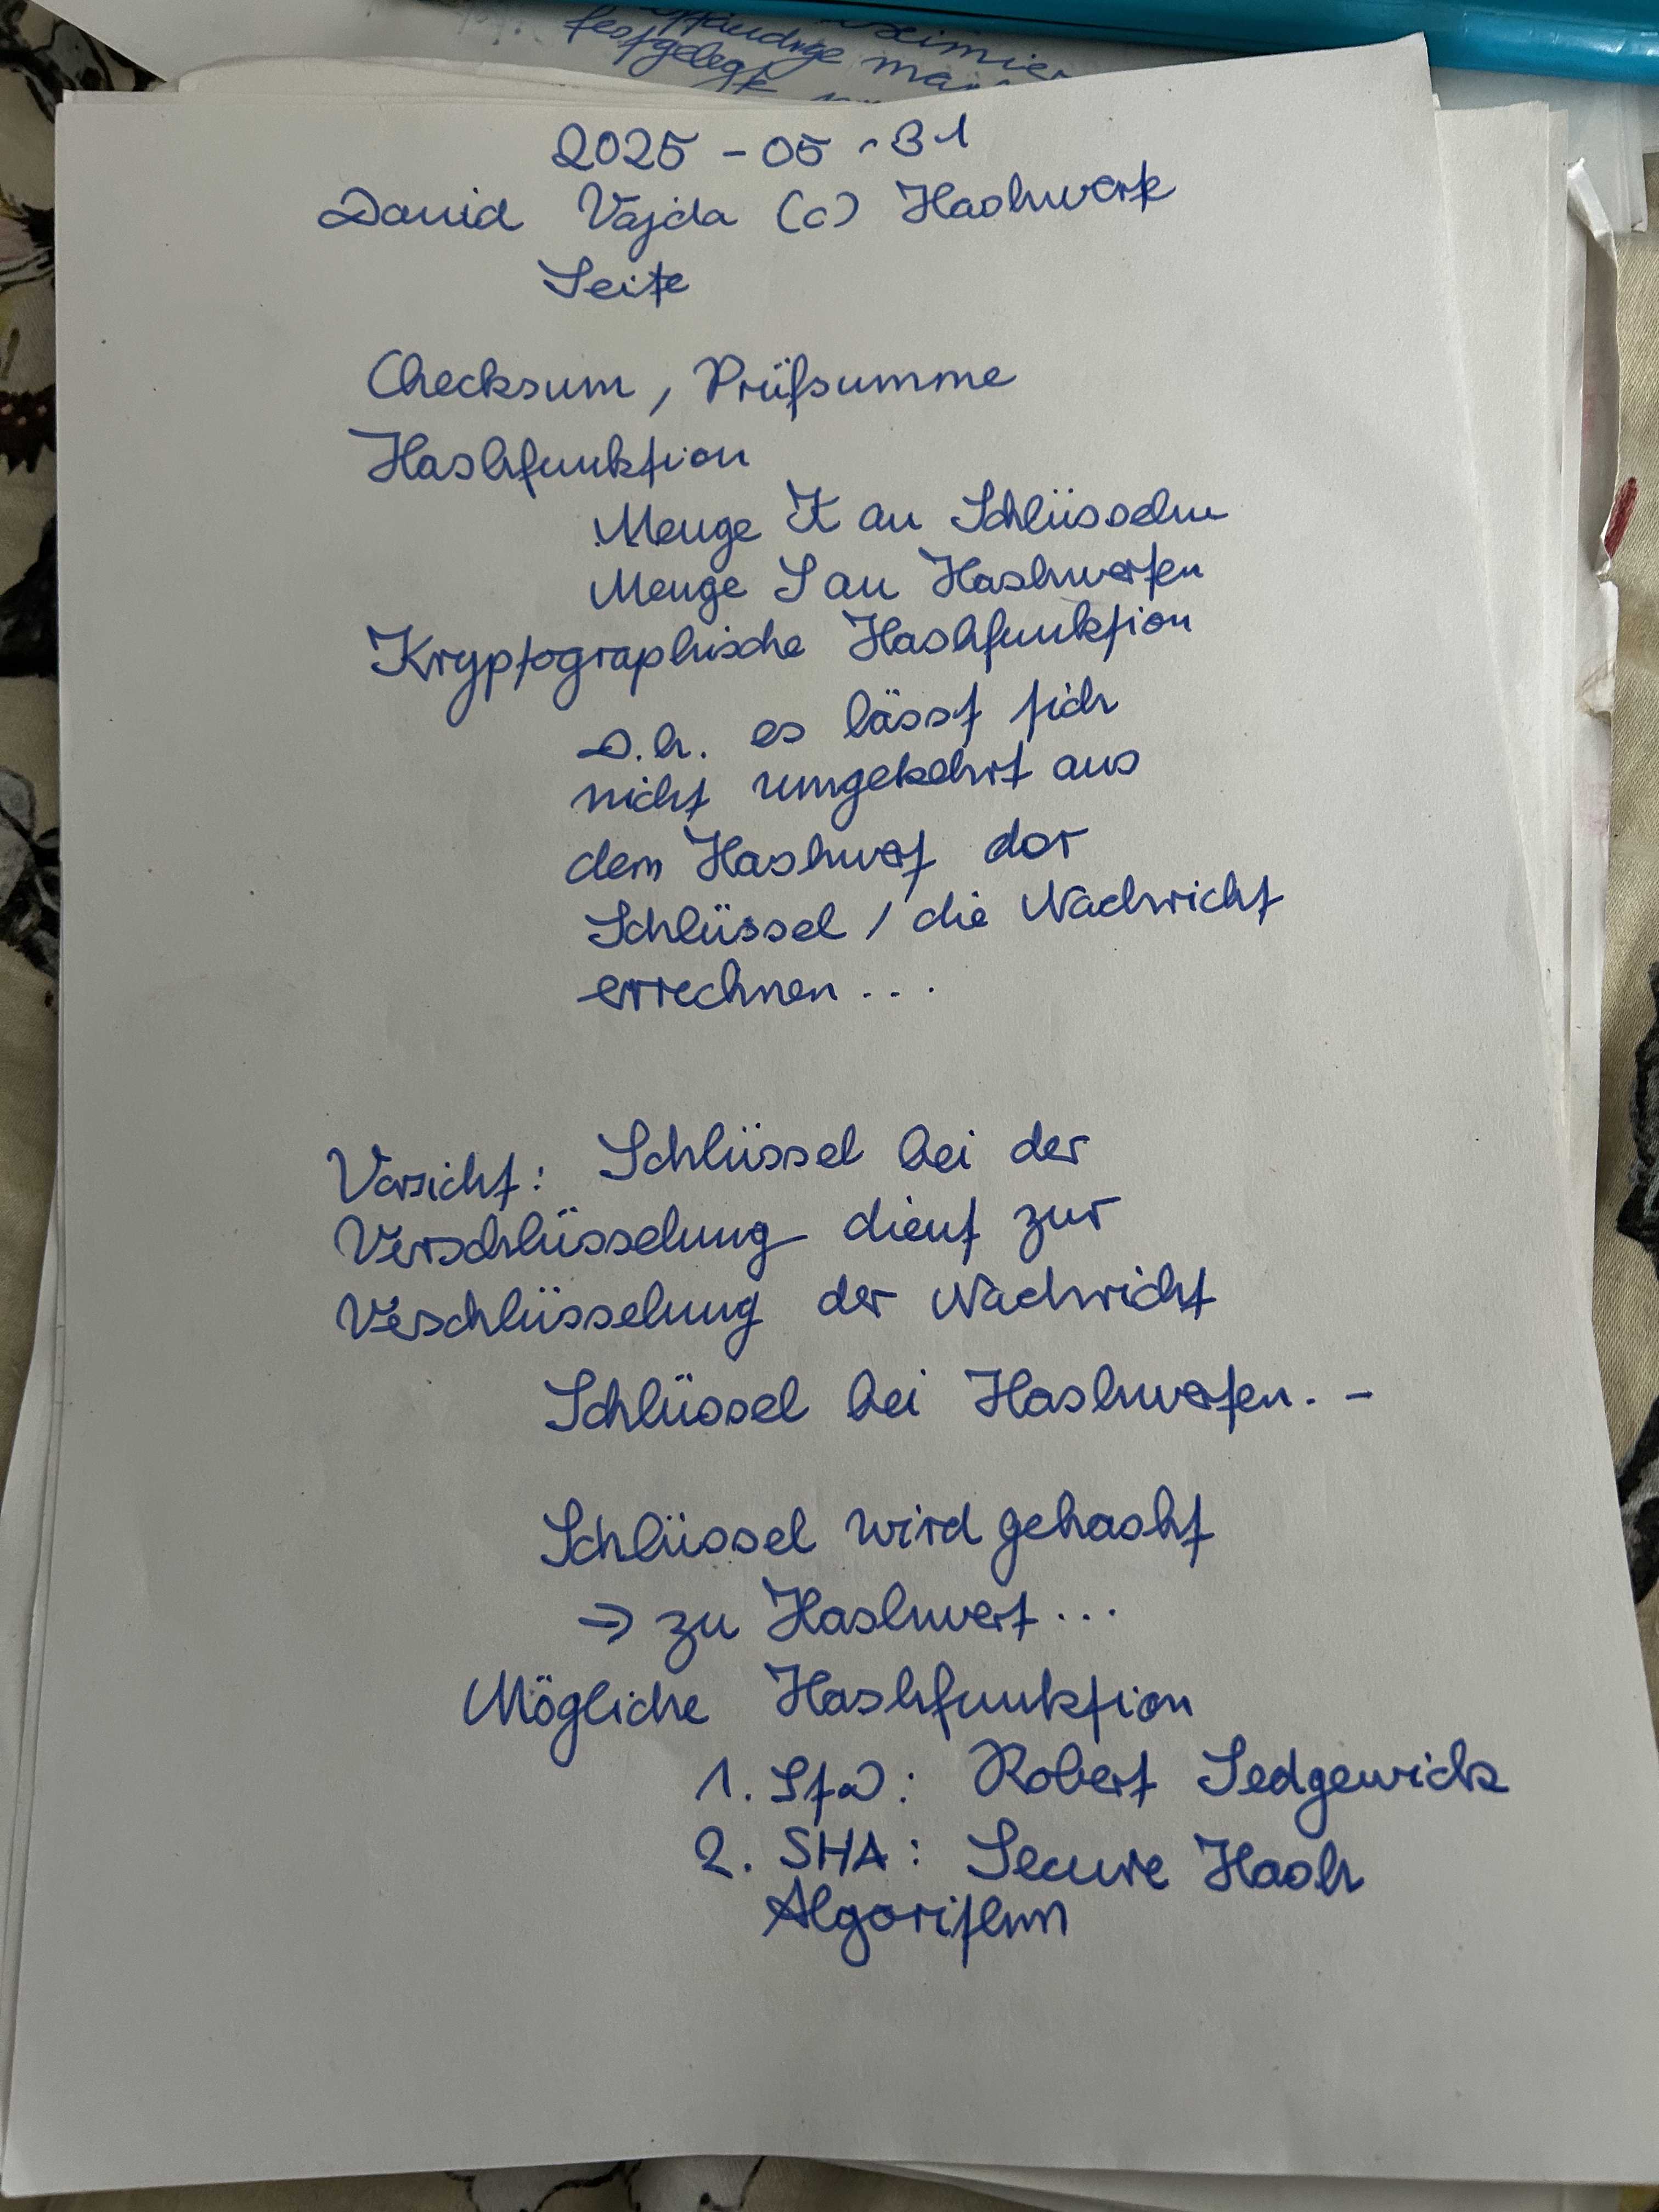 festgelegt
2025-05-31
David Vajda (c) Hashwerk
Seite
Checksum, Prüfsumme
Hashfunktion
Menge K an Schlüsseln
Menge S an Hashwerten
Kryptographische Hashfunktion
D.h. es lässt sich
nicht umgekehrt aus
dem Hashwert der
Schlüssel / die Nachricht
errechnen...
Vorsicht: Schlüssel bei der
Verschlüsselung dient zur
Veschlüsselung der Nachricht
Schlüssel bei Hashwerten. -
Schlüssel wird gehasht
→ zu Hashwert...
Mögliche Hashfunktion
1. : Robert Sedgewick
2. SHA: Secure Hash
Algorithm